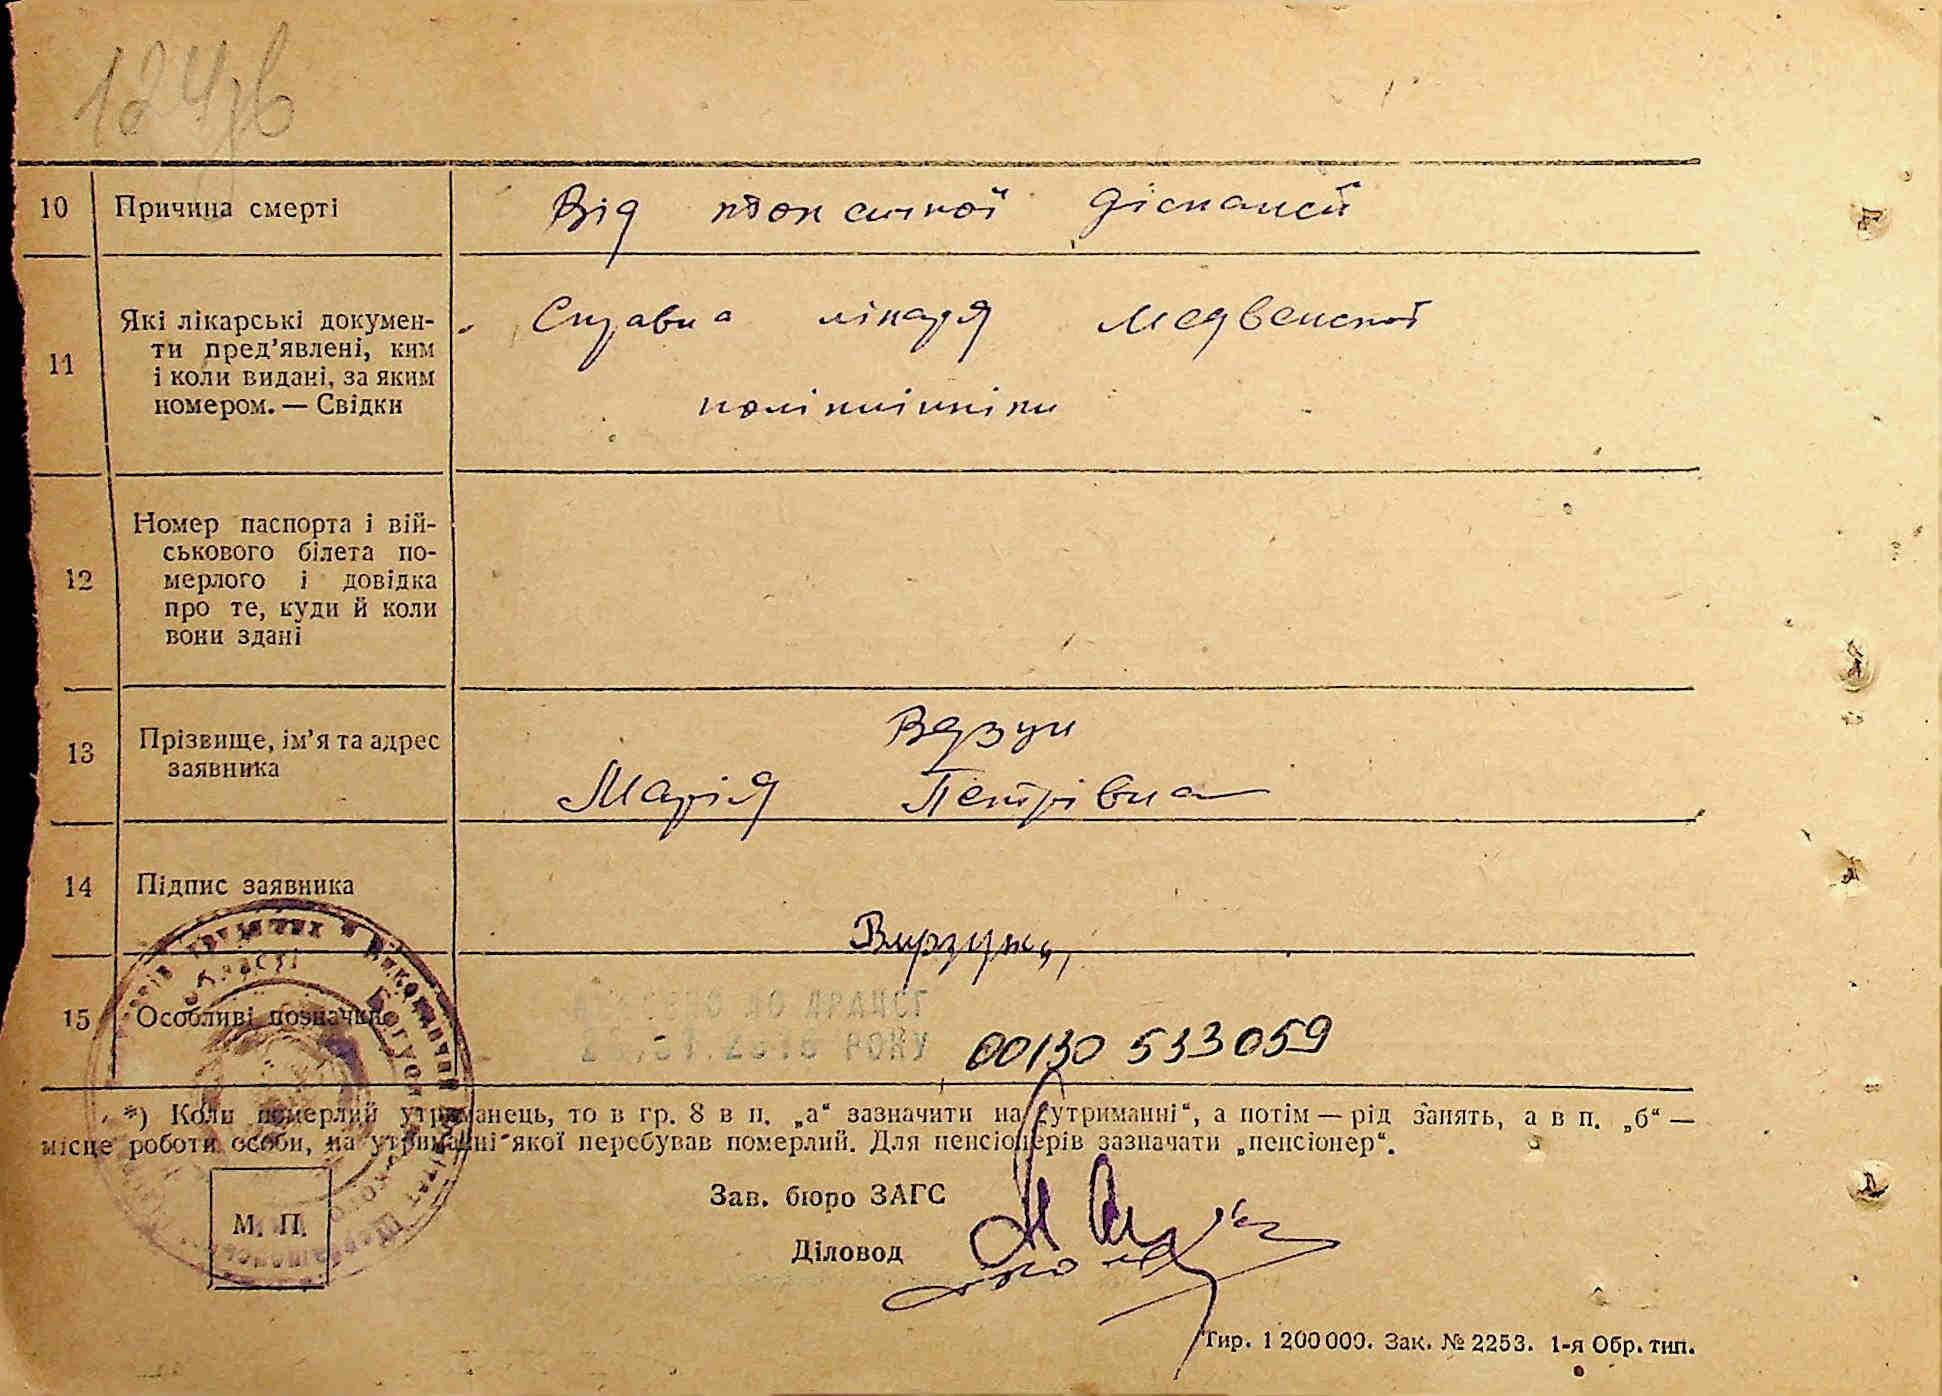 10 Причина смерті Від токсичної діспансії
11 Які лікарські докумен-
ти пред’явлені, ким
і коли видані, за яким
номером. — Свідки
Справка лікаря Медвенської
поліклініки
12 Номер паспорта і вій-
ськового білета по-
мерлого і довідка
про те, куди й коли
вони здані
13 Прізвище, ім’я та адрес
заявника
Марія Петрівна
14 Підпис заявника
15 Особливі позначки
ВНЕСЕНО ДО ДРАЦСГ
РОКУ
00130 533059
*) Коли померлий утриманець, то в гр. 8 в п. „а“ зазначити на „утриманні“, а потім — рід занять, а в п. „б“ —
місце роботи особи, на утриманні якої перебував померлий. Для пенсіонерів зазначати „пенсіонер“.
Зав. бюро ЗАГС
М. П.
Діловод
Тир. 1 200 000. Зак. № 2253. 1-я Обр. тип.